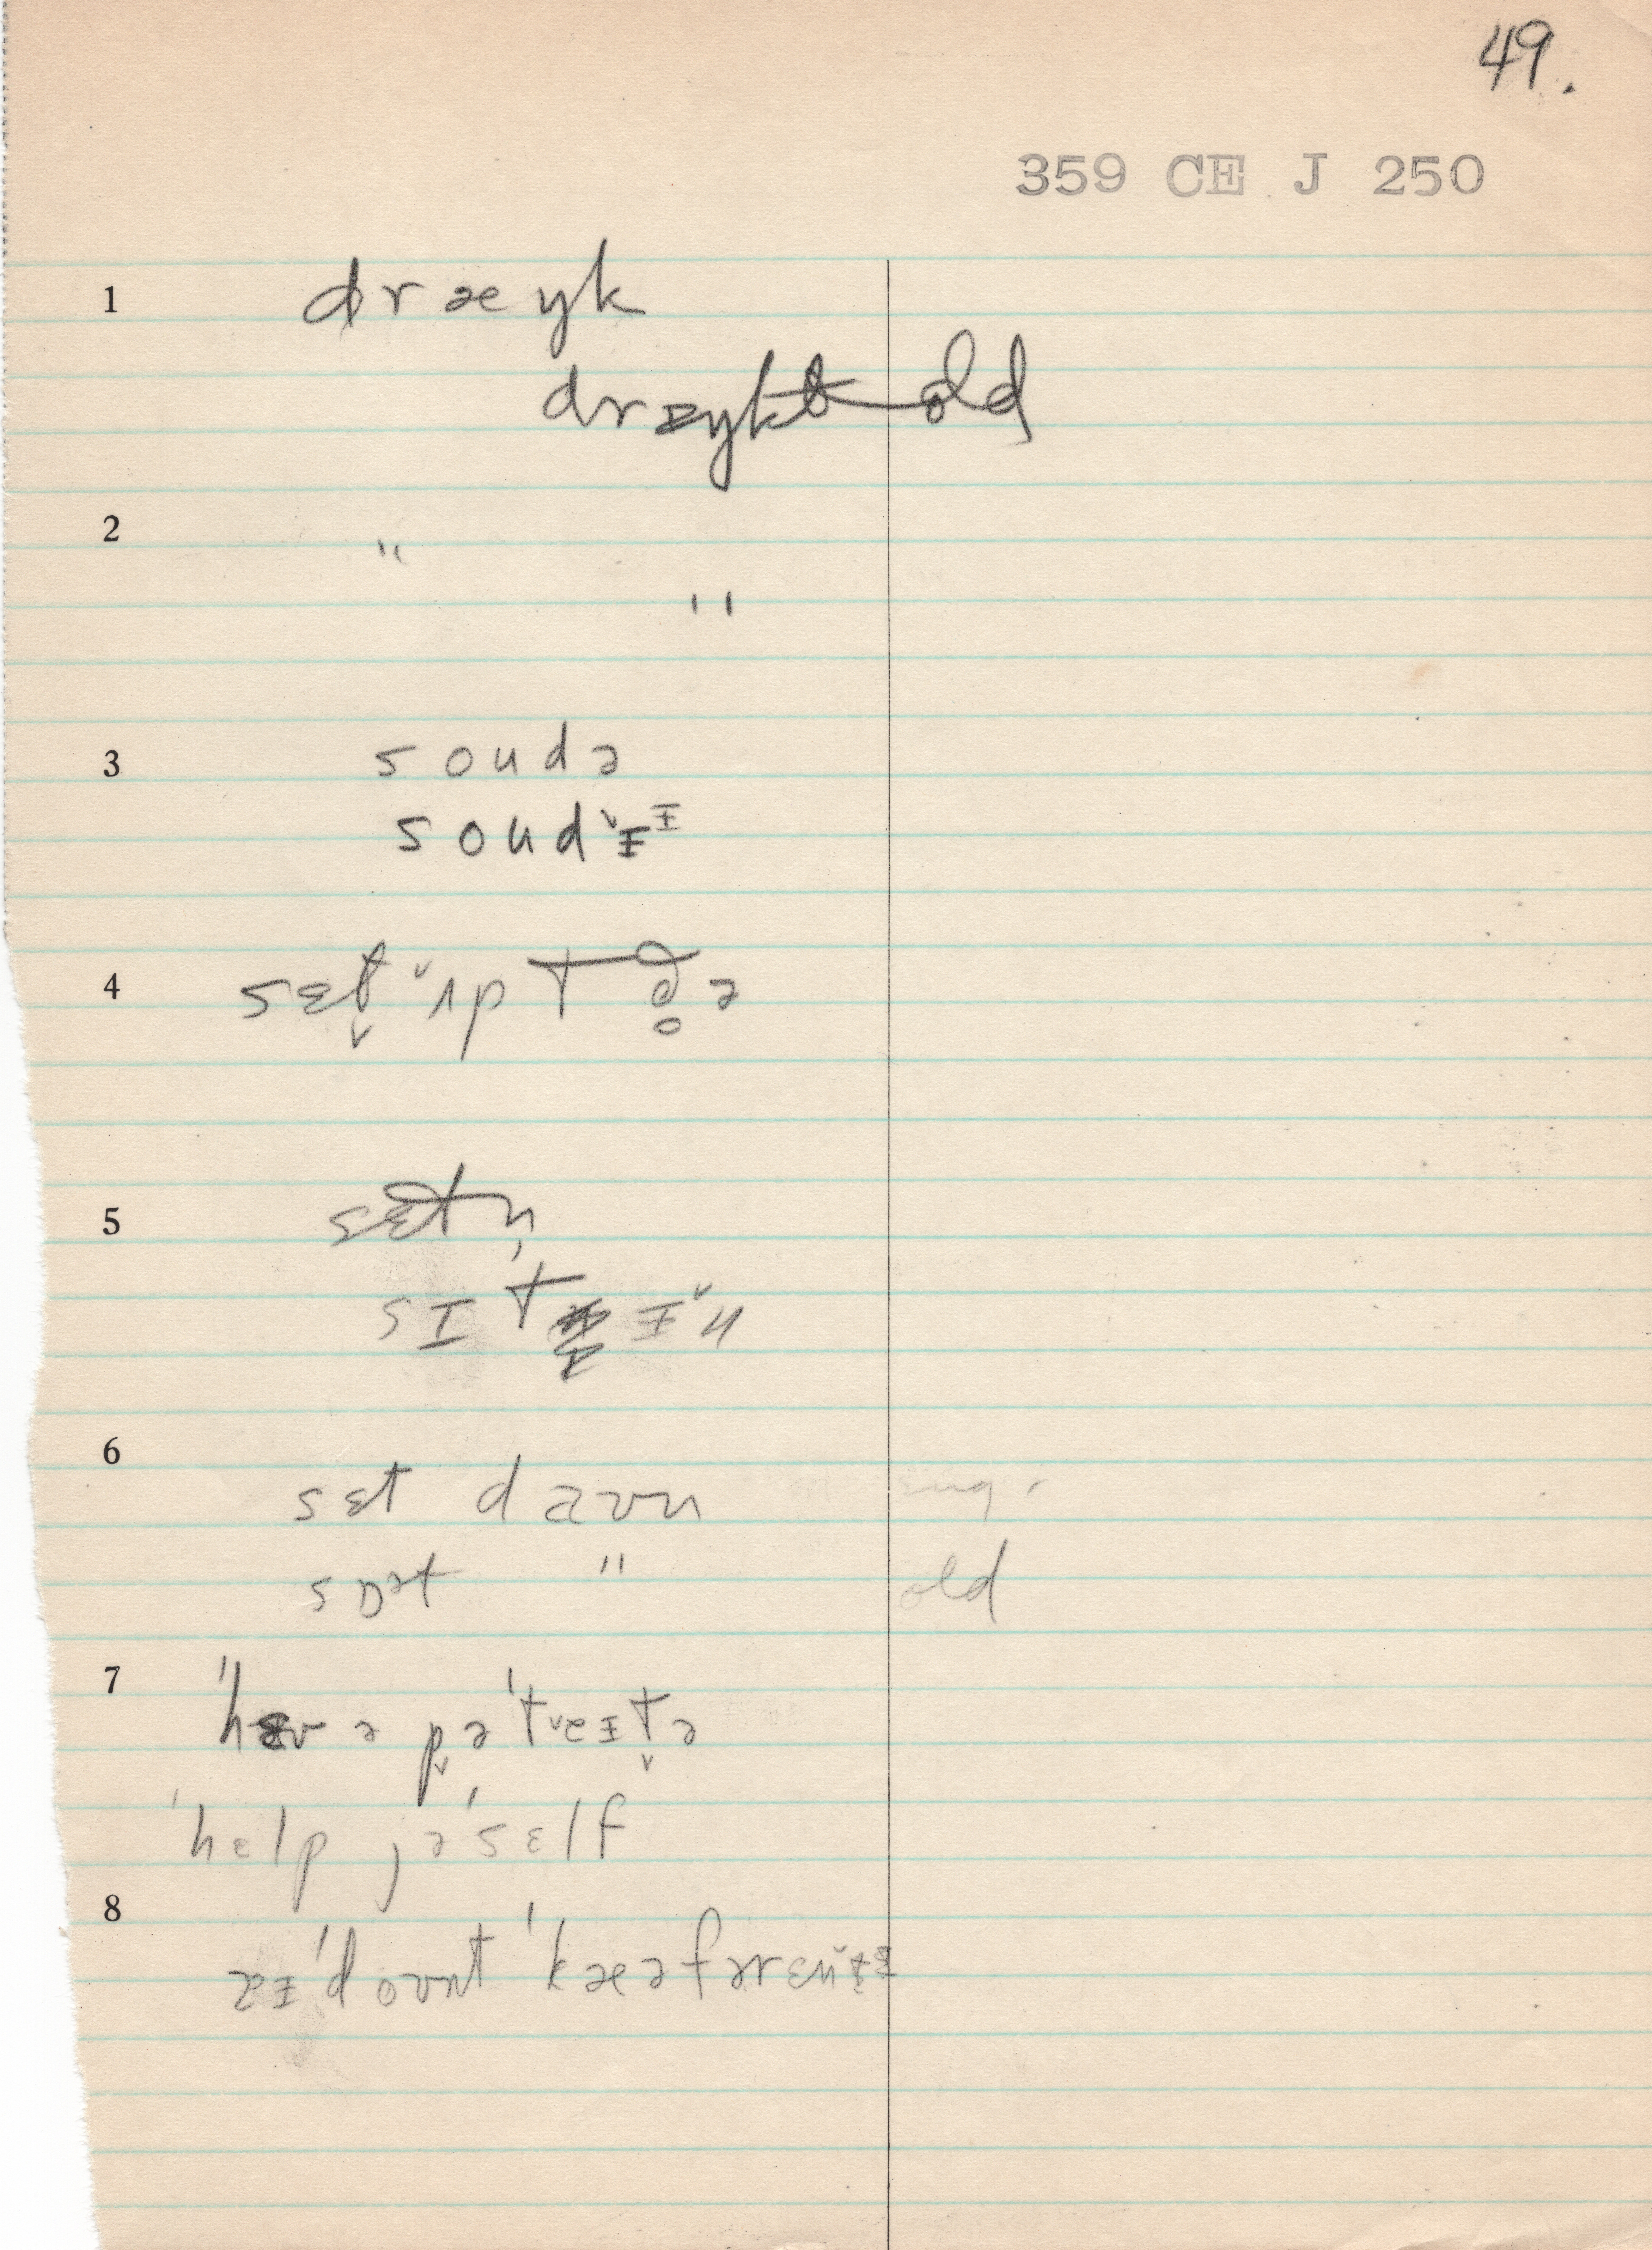 49.
359 CE J 250
1 dræŋk
dræŋkt old
2 "
"
3 soudə
soudɪ̆ɪ
4 sɛt̬ ʌ̆p t də̥ ə
5 sɛtn̩
sɪt ɪ̆n
6 sɛt daʊn
sɒət " old
7 'hæv ə p̬ə'tʋeɪt̬ə
'hɛlp jə'sɛlf
8 aɪ'doʊnt 'kæəfərɛnɪ̆